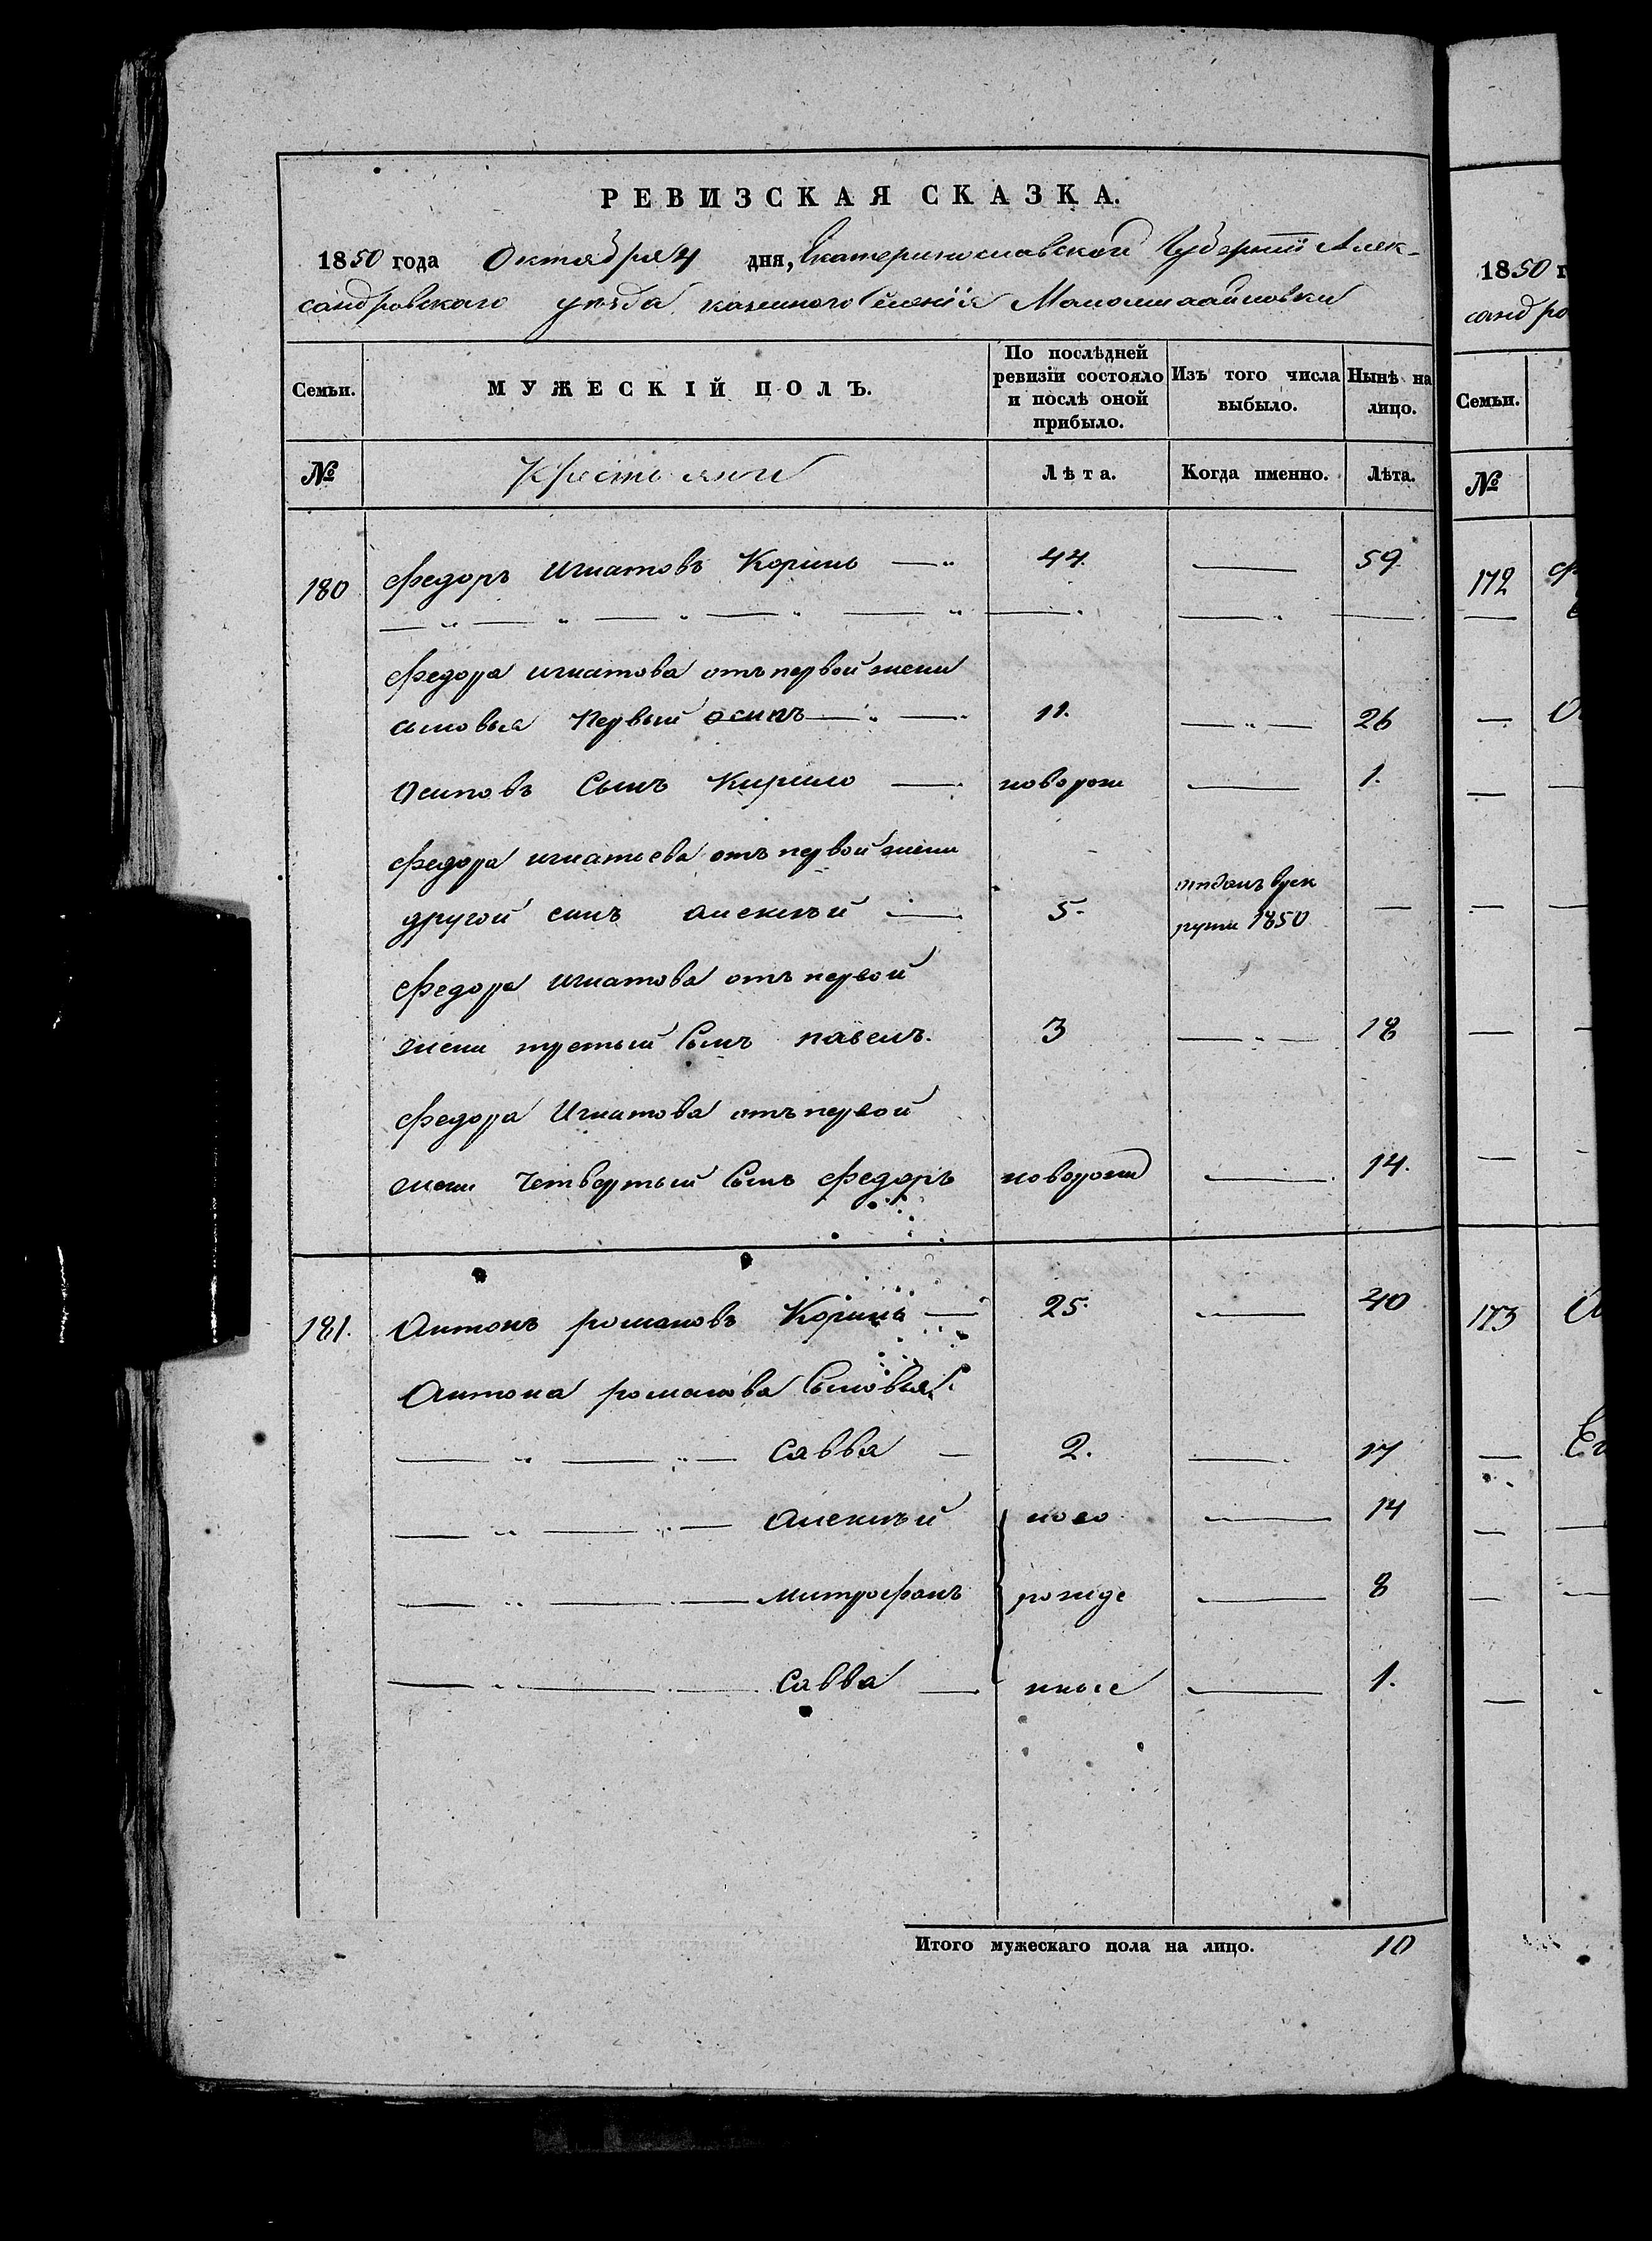 РЕВИЗСКАЯ СКАЗКА.
1850 года Октября 4 дня, Екатеринославской Губерніи Алек-
сандровскаго уѣзда казенного селенія Маломихайловки
Семьи. МУЖЕСКІЙ ПОЛЪ. По послѣдней ревизіи состояло и послѣ оной прибыло. Изъ того числа выбыло. Нынѣ на лицо.
№ Крестьяни Лѣта. Когда именно. Лѣта.
180 Федоръ Игнатовъ Коринь — 44. — 59
Федора игнатова отъ первой жени
сыновья Первый осипъ — 11. — 26
Осиповъ Сынъ Кирило — новорож — 1.
Федора игнатьева отъ первой жени
другой синъ алексѣй — 5. отданъ врек
рути 1850 —
Федора игнатова отъ первой
жени третьій Сынъ павелъ. 3 — 18
Федора Игнатова отъ первой
жени Четвертый Сынъ Федоръ новорожд — 14.
181. Антонъ романовъ Коринь — 25. — 40
Антона романова Сыновья:
— савва — 2. — 17
— Алексѣй ново — 14
— митрофанъ рожде — 8
— савва — нные — 1.
Итого мужескаго пола на лицо. 10
1850 г
санд ро
Семьи.
№
172
173